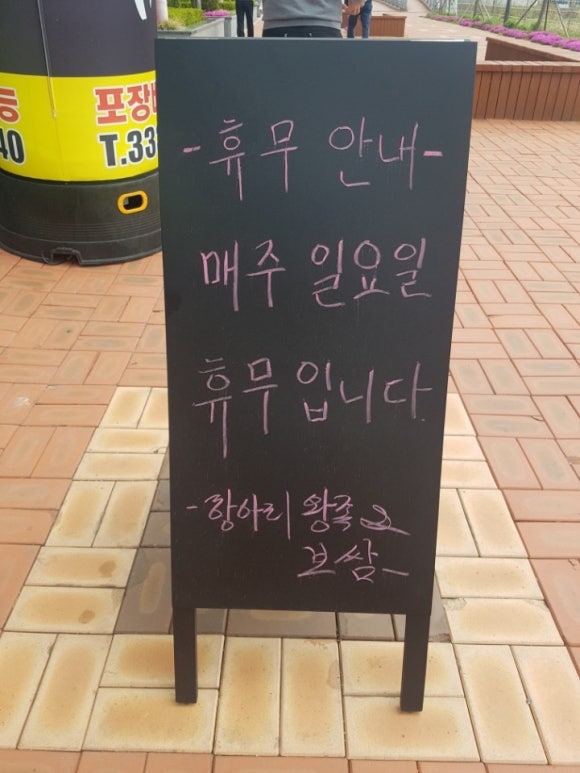 등
포장
40
T.33
-휴무 안내-
매주 일요일
휴무입니다.
-항아리 왕족&
보쌈-